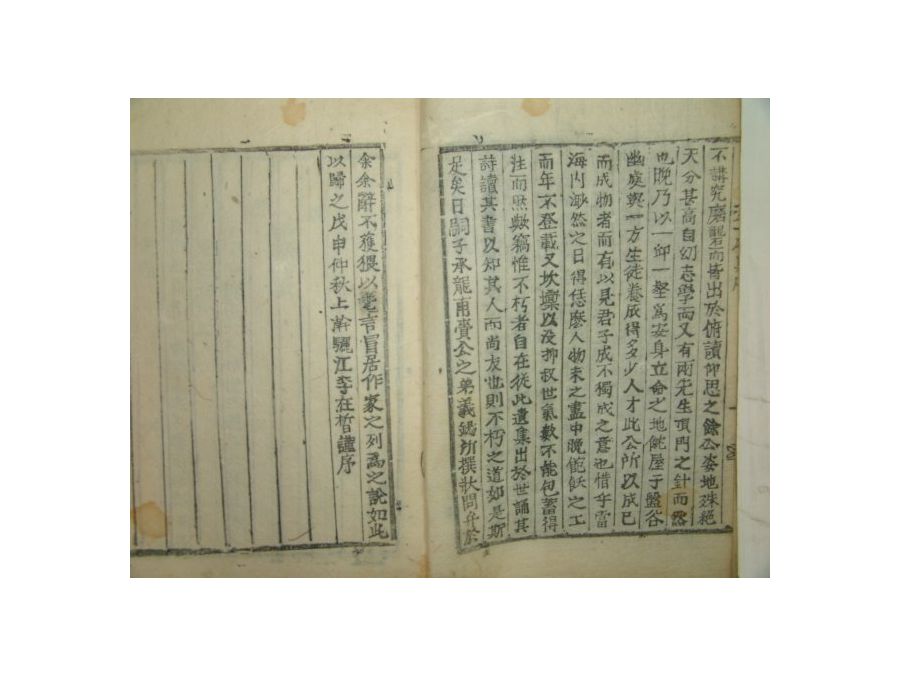 不講究磨礱而皆出於俯讀仰思之餘公姿地殊絕
天分甚高自幼志學而又有兩先生頂門之針而
也晚乃以一邱一壑爲安身立命之地就屋子盤谷
幽處與一方生徒養成得多少人才此公所以成己
而成物者而有以見君子成不獨成之意也惜乎當
海內渺然之日得恁麽人物來之盡中晚飽飫之工
而年不登載又坎壈以沒抑叔世氣數不能包蓄得
住而然歟竊惟不朽者自在從此遺集出於世誦其
詩讀其書以知其人而尚友也則不朽之道如是斯
足矣日嗣子承龍甫賚公之弟義所撰狀問弁於
余余辭不獲猥以耄言冒居作家之列爲之說如此
以歸之戊申仲秋上澣驪江李在晳謹序